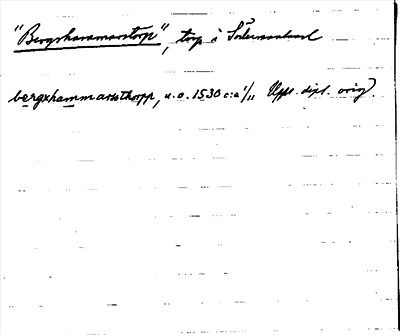 "Bergshammarstorp", torp i Södermanland
bergxhammarsthorpp, u.o. 1530 c:a 1/11 Uppl. dipl. orig.